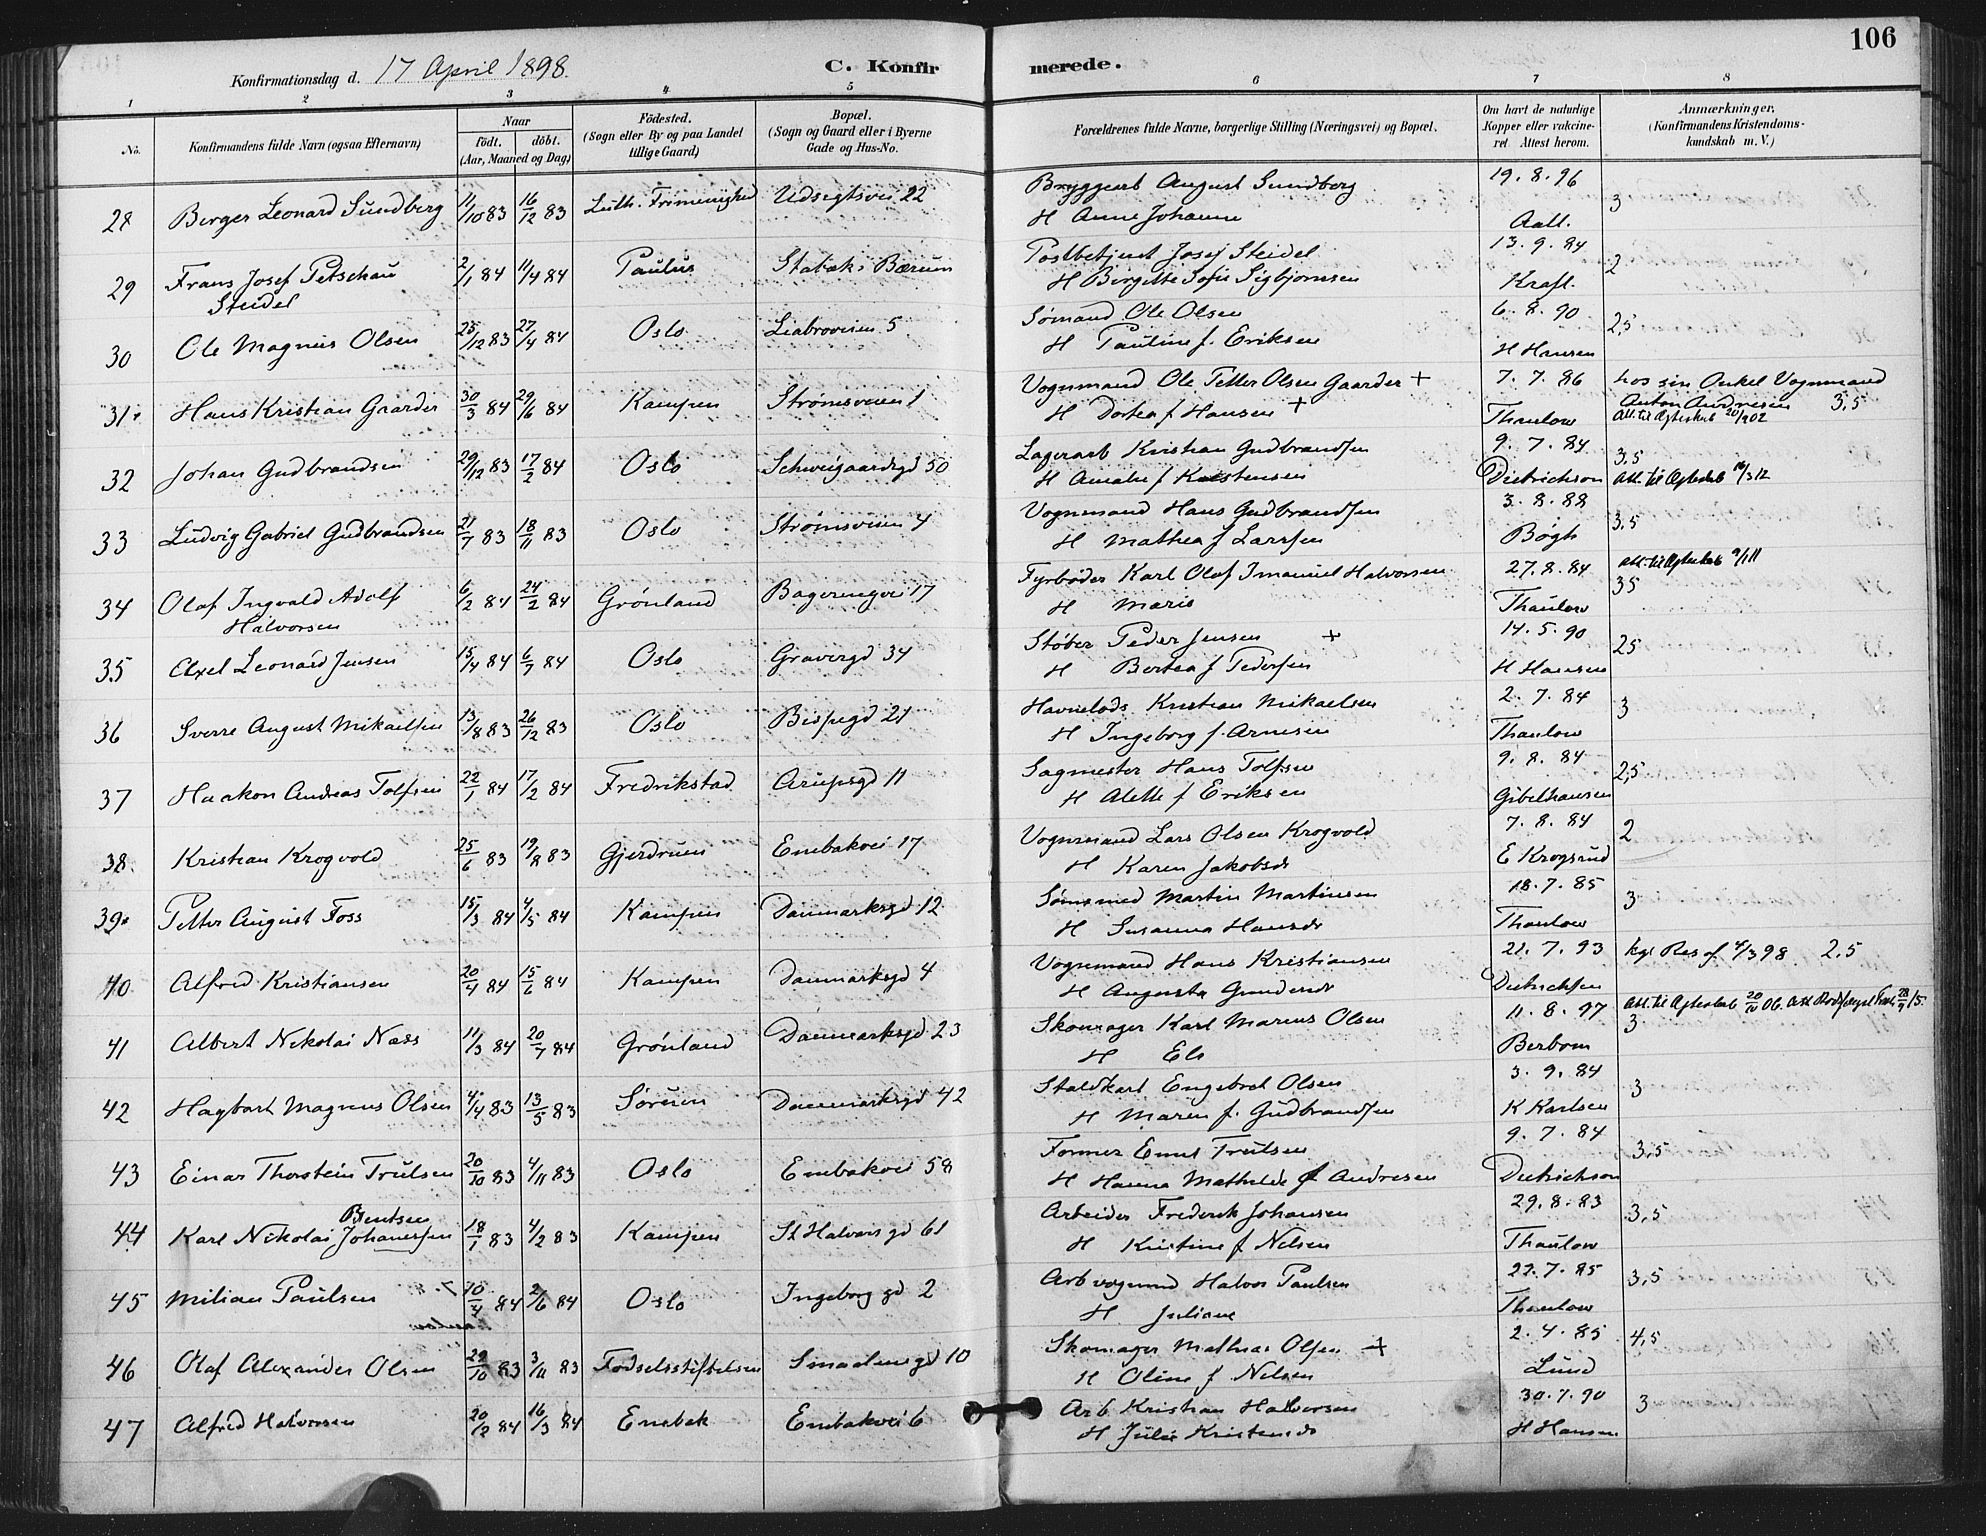 106
Konfirmationsdag d. 17 April 1898.
C. Konfir
merede.
1 2 3 4 5 6 7 8
No. Konfirmandens fulde Navn (ogsaa Efternavn)
Naar
født. døbt.
(Aar, Maaned og Dag)
Fødested.
(Sogn eller By og paa Landet
tillige Gaard)
Bopæl.
(Sogn og Gaard eller i Byerne
Gade og Hus-No.
Forældrenes fulde Navne, borgerlige Stilling (Næringsvei) og Bopæl.
Om havt de naturlige
Kopper eller vakcine-
ret Attest herom.
Anmærkninger.
(Konfirmandens Kristendoms-
kundskab m. V.)
28 Berger Leonard Sundberg 11/10 83 16/12 83 Luth. Frimenighed Udsigtsvei 22 Bryggearb August Sundberg 19.8.96 3
H Anne Johanne Aall.
29 Frans Josef Petschau 2/1 84 11/4 84 Paulus Stabæk i Bærum Postbetjent Josef Steidel 13.9.84 2
Steidel H Birgitte Sofie Sigbjørnsen Kraft.
30 Ole Magnus Olsen 25/12 83 27/4 84 Oslo Liabroveien 5 Sømand Ole Olsen 6.8.90 2,5
H Pauline f. Eriksen H Hansen
31 Hans Kristian Gaarder 30/3 84 29/6 84 Kampen Strømsveien 1 Vognmand Ole Petter Olsen Gaarder + 7.7.86 hos sin Onkel Vognmand
H Dortea f Hansen + Thaulow Anton Andresen 3,5
Att. til Ægteskab 20/1902
32 Johan Gudbrandsen 29/12 83 17/2 84 Oslo Schweigaardsgd 50 Lagerarb Kristian Gudbrandsen 9.7.84 3,5
H Amalie f Karstensen Dietrichson Att. til Ægteskab 16/3 12
33 Ludvig Gabriel Gudbrandsen 21/7 83 18/11 83 Oslo Strømsveien 4 Vognmand Hans Gudbrandsen 3.8.88 3,5
H Mathea f Larssen Bøgh
34 Olaf Ingvald Adolf 6/2 84 24/2 84 Grønland Bageringvei 17 Fyrbøder Karl Olaf Imanuel Halvorsen 27.8.84 Att. til Ægteskab 9/1 11
Halvorsen H Maris Thaulow 35
35 Axel Leonard Jensen 15/4 84 6/7 84 Oslo Gravergd 34 Støber Peder Jensen + 14.5.90 25
H Bertea f Pedersen H Hansen
36 Sverre August Mikaelsen 13/8 83 26/12 83 Oslo Bispegd 21 Havnelods Kristian Mikaelsen 2.7.84 3
H Ingeborg f. Arnesen Thaulow
37 Haakon Andreas Tolfsen 22/1 84 17/2 84 Fredrikstad Arupsgd 11 Sagmester Hans Tolfsen 9.8.84 2,5
H Alette f Eriksen Gibelhausen
38 Kristian Krogvold 25/6 83 19/8 83 Gjerdrum Enebakvei 17 Vognmand Lars Olsen Krogvold 7.8.84 2
H Karen Jakobsdr E Krogsrud
39 Petter August Foss 15/3 84 4/5 84 Kampen Danmarksgd 12 Sømsmed Martin Martinsen 18.7.85 3
H Susanna Hansdr Thaulow
40 Alfred Kristiansen 20/4 84 15/6 84 Kampen Danmarksgd 4 Vognmand Hans Kristiansen 21.7.93 kgl Res af 4/3 98 2,5
H Augusta Gundersdr Dietrichsen
41 Albert Nikolai Næss 11/3 84 20/7 84 Grønland Danmarksgd 23 Skomager Karl Marius Olsen 11.8.97 Att. til Ægteskab 20/10 06.
H Els Berbom 3
42 Hagbart Magnus Olsen 4/4 83 13/5 83 Sørum Danmarksgd 42 Staldkarl Engebret Olsen 3.9.84 3
H Maren f. Gudbrandsen K Karlsen
43 Einar Thorstein Trulsen 20/10 83 4/11 83 Oslo Enebakvei 58 Former Ernst Trulsen 9.7.84 3,5
H Hanna Mathilde f Andresen Dietrichson
Berntsen
44 Karl Nikolai Johanessen 18/1 83 4/2 83 Kampen St Halvors gd 61 Arbeider Frederik Johansen 29.8.83 3,5
H Kristine f Nilsen Thaulow
45 Milian Paulsen 10/4 84 2/6 84 Oslo Ingeborg gd 2 Arb vognmd Halvor Paulsen 27.7.85 3,5
H Juliane Thaulow
46 Olaf Alexander Olsen 29/10 83 3/11 83 Fødselsstiftelsen Smaalensgd 10 Skomager Mathias Olsen + 2.4.85 4,5
H Oline f Nilsen Lund
47 Alfred Halvorsen 20/2 84 16/3 84 Enebak Enebakvei 6 Arb Kristian Halvorsen 30.7.90 3
H Julie Kristensdr H Hansen